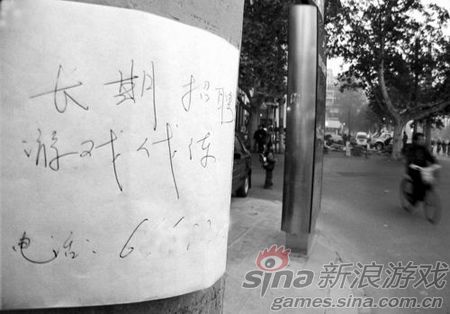 长期招聘
游戏代练
电话：6
sina 新浪游戏
games.sina.com.cn